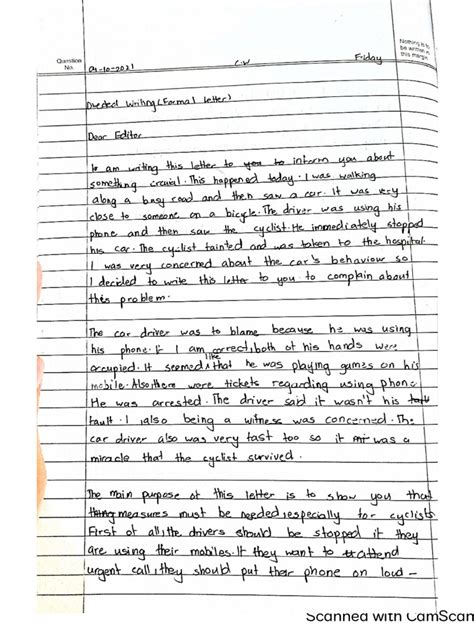 Nothing is to
be written in
this margin.
Question
No.
01-10-2021 C.W Friday
Directed Writing (Formal Letter)
Dear Editor
I am writing this letter to you to inform you about
something crucial. This happened today. I was walking
along a busy road and then saw a car. It was very
close to someone on a bicycle. The driver was using his
phone and then saw the cyclist. He immediately stopped
his car. The cyclist fainted and was taken to the hospital.
I was very concerned about the car's behaviour so
I decided to write this letter to you to complain about
this problem.
The car driver was to blame because he was using
his phone. If I am correct, both of his hands were
occupied. It seemed like that he was playing games on his
mobile. Also, there were tickets regarding using phone
He was arrested. The driver said it wasn't his
fault. I, also being a witness was concerned. The
car driver also was very fast too so it was a
miracle that the cyclist survived.
The main purpose of this letter is to show you that
thing measures must be needed, especially for cyclists
First of all, the drivers should be stopped if they
are using their mobiles. If they want to attend
urgent call, they should put their phone on loud-
Scanned with CamScan